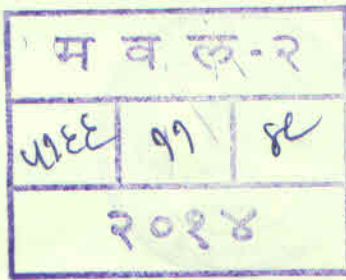 म व ल-२
५१६६ ११ ४९
२०१४